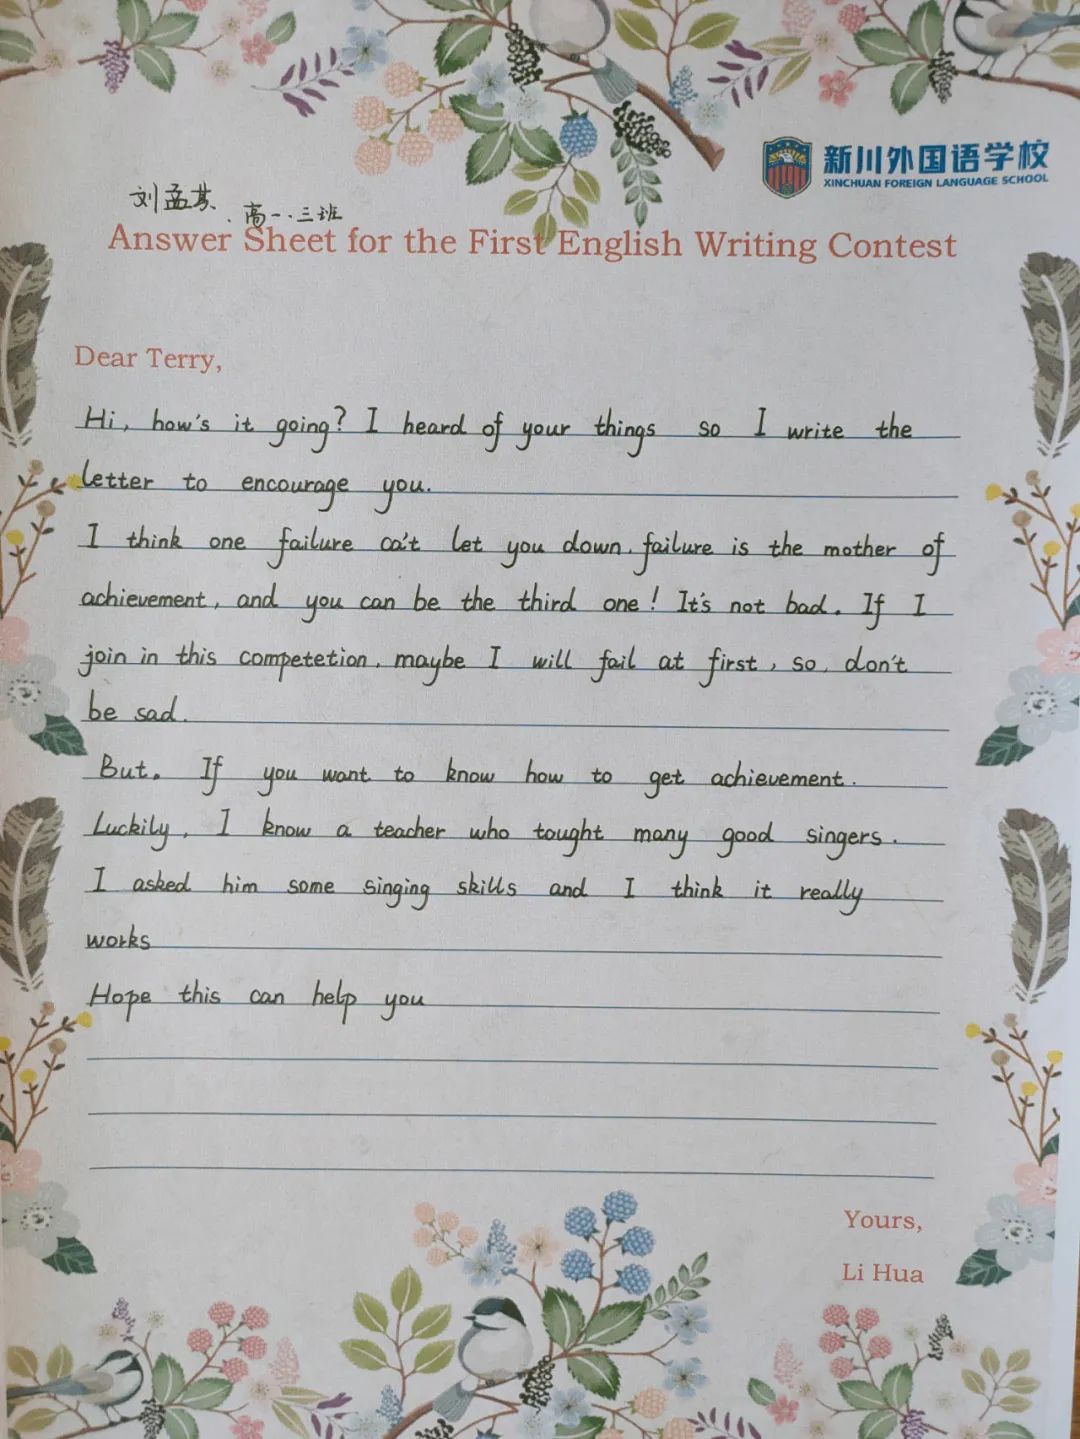 新川外国语学校
XINCHUAN FOREIGN LANGUAGE SCHOOL
刘孟其、高一.三班
Answer Sheet for the First English Writing Contest
Dear Terry,
Hi, how's it going? I heard of your things so I write the
letter to encourage you.
I think one failure ca't let you down. failure is the mother of
achievement, and you can be the third one! It's not bad. If I
join in this competetion, maybe I will fail at first, so, don't
be sad.
But. If you want to know how to get achievement.
Luckily, I know a teacher who tought many good singers.
I asked him some singing skills and I think it really
works
Hope this can help you
Yours,
Li Hua